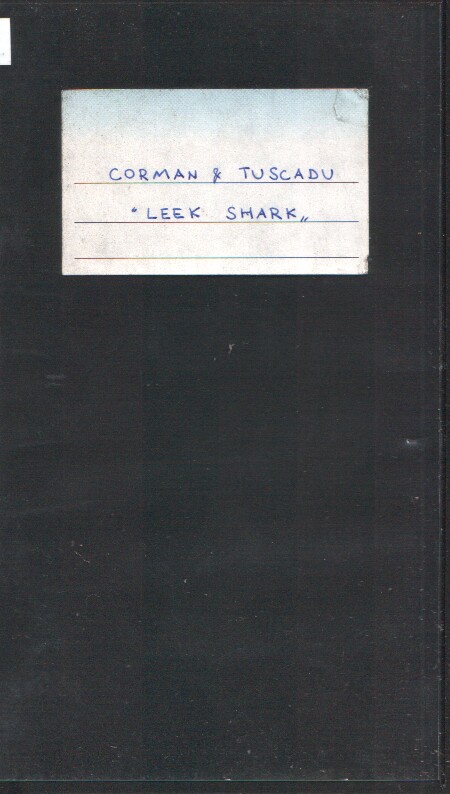 CORMAN & TUSCADU
“LEEK SHARK„